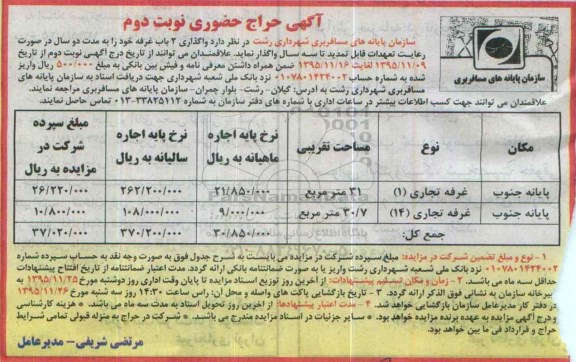 آگهی حراج حضوری نوبت دوم
سازمان پایانه های مسافربری
سازمان پایانه های مسافربری شهرداری رشت در نظر دارد واگذاری ۲ باب غرفه خود را به مدت دو سال در صورت
رعایت تعهدات قابل تمدید تا سه سال واگذار نماید. علاقمندان می توانند از تاریخ درج آگهی نوبت دوم از تاریخ
۱۳۹۵/۱۱/۰۹ لغایت ۱۳۹۵/۱۱/۱۶ ضمن همراه داشتن معرفی نامه و فیش بین بانکی به مبلغ ۵۰۰/۰۰۰ ریال واریز
شده به شماره حساب ۰۱۰۷۸۰۱۴۲۴۰۰۲ نزد بانک ملی شعبه شهرداری جهت دریافت اسناد به سازمان پایانه های
مسافربری شهرداری رشت به آدرس: گیلان - رشت- بلوار چمران- سازمان پایانه های مسافربری مراجعه نمایند.
علاقمندان می توانند جهت کسب اطلاعات بیشتر در ساعات اداری با شماره های دفتر سازمان به شماره ۳۳۸۲۵۱۱۲-۰۱۳ تماس حاصل نمایند.
مکان نوع مساحت تقریبی نرخ پایه اجاره ماهیانه به ریال نرخ پایه اجاره سالیانه به ریال مبلغ سپرده شرکت در مزایده به ریال
پایانه جنوب غرفه تجاری (۱) ۳۱ متر مربع ۲۱/۸۵۰/۰۰۰ ۲۶۲/۲۰۰/۰۰۰ ۲۶/۲۲۰/۰۰۰
پایانه جنوب غرفه تجاری (۱۴) ۳۰/۷ متر مربع ۹/۰۰۰/۰۰۰ ۱۰۸/۰۰۰/۰۰۰ ۱۰/۸۰۰/۰۰۰
جمع کل: ۳۰/۸۵۰/۰۰۰ ۳۷۰/۲۰۰/۰۰۰ ۳۷/۰۲۰/۰۰۰
۱ - نوع و مبلغ تضمین شرکت در مزایده: مبلغ سپرده شرکت در مزایده می بایست به شرح جدول فوق به صورت وجه نقد به حساب سپرده شماره
۰۱۰۷۸۰۱۴۲۴۰۰۲ نزد بانک ملی شعبه شهرداری رشت واریز یا به صورت ضمانتنامه بانکی ارائه گردد. مدت اعتبار ضمانتنامه از تاریخ افتتاح پیشنهادات
حداقل سه ماه می باشد. ۲ - زمان و مکان تسلیم پیشنهادات: از آخرین روز توزیع اسناد مزایده تا پایان وقت اداری روز دوشنبه مورخ ۱۳۹۵/۱۱/۲۵ به
دبیرخانه سازمان به نشانی فوق الذکر ارائه گردد. ۳ - تاریخ بازگشایی پاکت های واصله و محل آن: راس ساعت ۱۴:۳۰ روز سه شنبه مورخ ۱۳۹۵/۱۱/۲۶
در دفتر کار مدیرعامل سازمان بازگشایی خواهد شد. ۴ - مدت اعتبار پیشنهادها: از آخرین روز تحویل اسناد به مدت سه ماه می باشد. * هزینه کارشناسی
و درج آگهی مزایده به عهده برنده مزایده خواهد بود. * سایر جزئیات در اسناد مزایده مندرج می باشد. * شرکت در حراج به منزله قبولی تمامی شرایط
حراج و قرارداد فی ما بین خواهد بود.
مرتضی شریفی - مدیرعامل